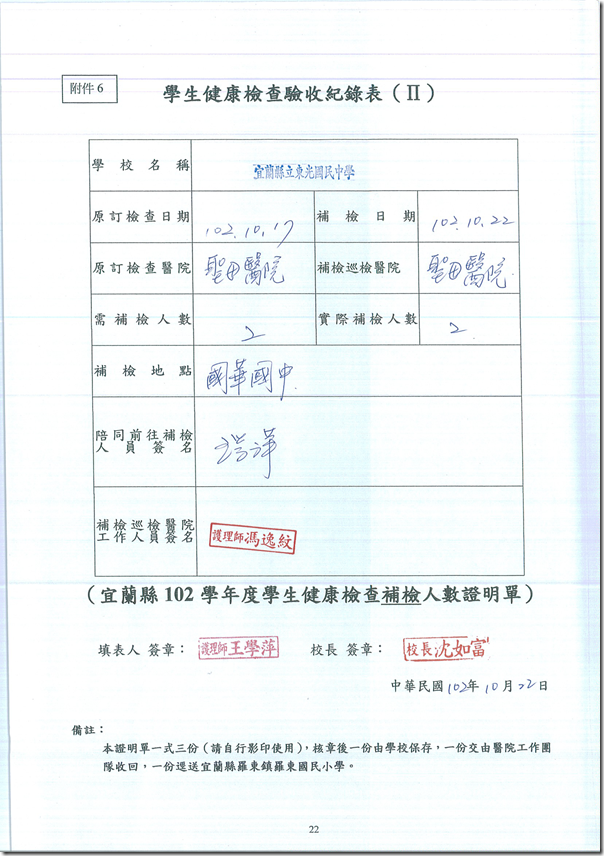 附件 6
學生健康檢查驗收紀錄表（II）
學校名稱 宜蘭縣立東光國民中學
原訂檢查日期 102.10.17 補檢日期 102.10.22
原訂檢查醫院 聖母醫院 補檢巡檢醫院 聖母醫院
需補檢人數 2 實際補檢人數 2
補檢地點 國華國中
陪同前往補檢
人員簽名
補檢巡檢醫院
工作人員簽名 護理師馮逸紋
（宜蘭縣 102 學年度學生健康檢查補檢人數證明單）
填表人 簽章： 護理師王學萍 校長 簽章： 校長沈如富
中華民國 102年 10 月 22 日
備註：
本證明單一式三份（請自行影印使用），核章後一份由學校保存，一份交由醫院工作團
隊收回，一份逕送宜蘭縣羅東鎮羅東國民小學。
22